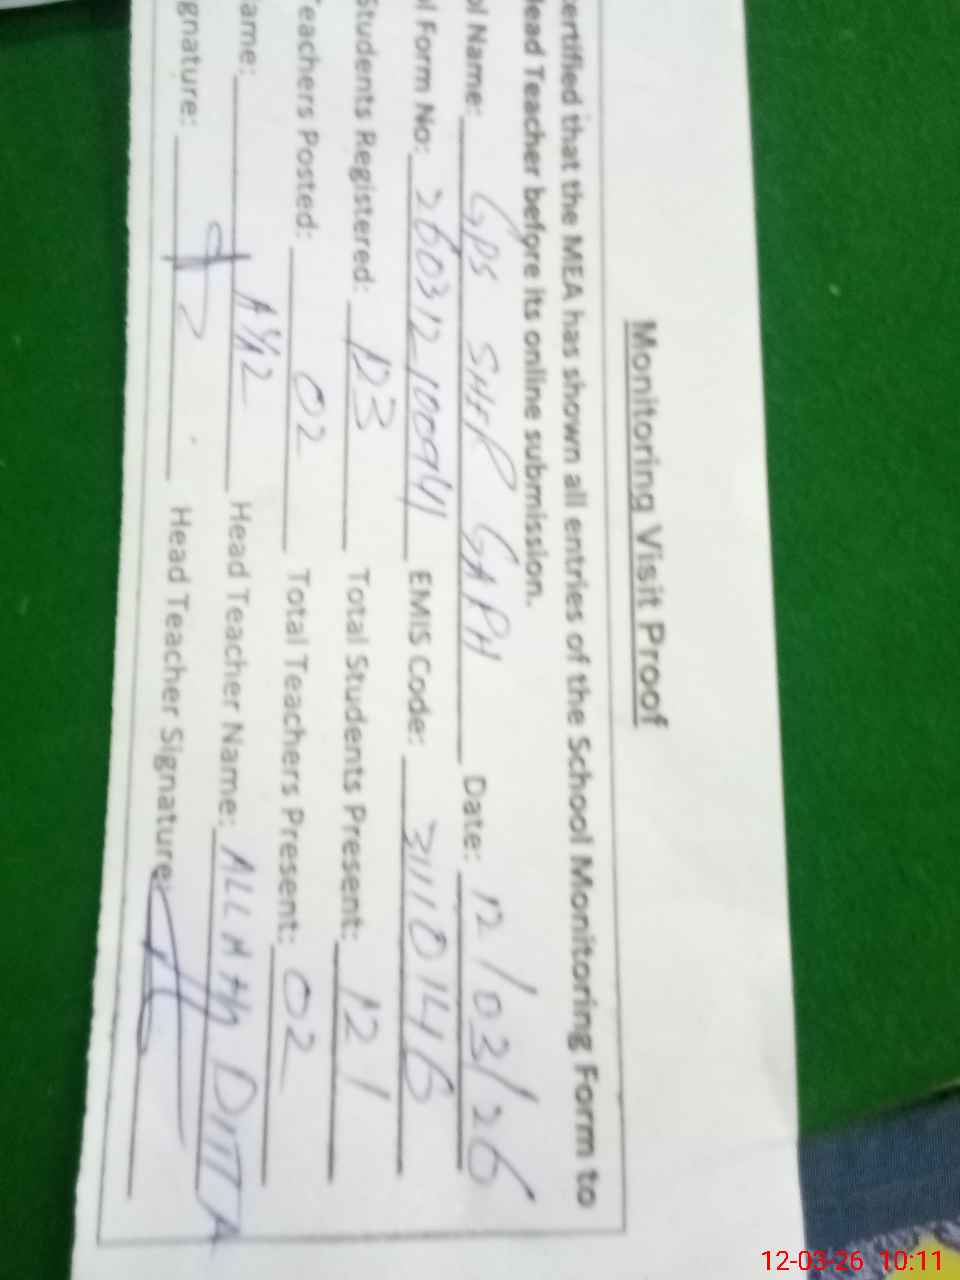 Monitoring Visit Proof
ertified that the MEA has shown all entries of the School Monitoring Form to
Head Teacher before its online submission.
ol Name: GPS SHER GARH Date: 12/03/26
l Form No: 260312100941 EMIS Code: 31110146
Students Registered: 123 Total Students Present: 121
Teachers Posted: 02 Total Teachers Present: 02
ame: Head Teacher Name: ALLAH DITTA
gnature: Head Teacher Signature:
12-03-26 10:11